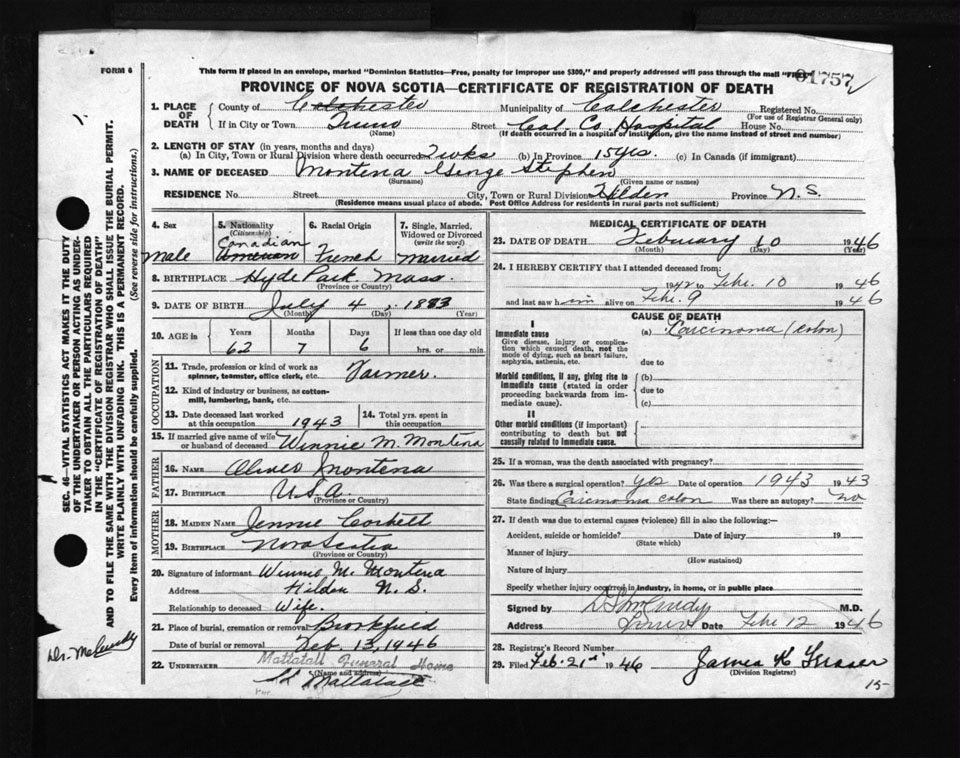 FORM 6
This form if placed in an envelope, marked "Dominion Statistics—Free, penalty for improper use $300," and properly addressed will pass through the mail "FREE"
01757
PROVINCE OF NOVA SCOTIA—CERTIFICATE OF REGISTRATION OF DEATH
1. PLACE OF DEATH County of Colchester Municipality of Colchester Registered No.
(For use of Registrar General only)
If in City or Town Truro Street Col. Co. Hospital House No.
(Name) (If death occurred in a hospital of institution, give the name instead of street and number)
2. LENGTH OF STAY (in years, months and days)
(a) In City, Town or Rural Division where death occurred 2 wks (b) In Province 15 yrs. (c) In Canada (if immigrant)
3. NAME OF DECEASED Montena George Stephen
(Surname) (Given name or names)
RESIDENCE No. Street City, Town or Rural Division Hilden Province N.S.
(Residence means usual place of abode. Post Office Address for residents in rural parts not sufficient)
4. Sex male
5. Nationality (Citizenship) Canadian American
6. Racial Origin French
7. Single, Married, Widowed or Divorced (write the word) married
8. BIRTHPLACE Hyde Park Mass.
(Province or Country)
9. DATE OF BIRTH July 4, 1883
(Month) (Day) (Year)
10. AGE in Years Months Days If less than one day old
62 7 6 hrs. or min.
OCCUPATION
11. Trade, profession or kind of work as spinner, teamster, office clerk, etc. Farmer.
12. Kind of industry or business, as cotton-mill, lumbering, bank, etc.
13. Date deceased last worked at this occupation 1943
14. Total yrs. spent in this occupation
15. If married give name of wife or husband of deceased Winnie M. Montena
FATHER
16. NAME Oliver Montena
17. BIRTHPLACE U.S.A.
(Province or Country)
MOTHER
18. MAIDEN NAME Jennie Corbett
19. BIRTHPLACE Nova Scotia
(Province or Country)
20. Signature of informant Winnie M. Montena
Address Hilden N.S.
Relationship to deceased Wife.
21. Place of burial, cremation or removal Brookfield
Date of burial or removal Feb. 13, 1946
22. UNDERTAKER Mattatall Funeral Home
(Name and address)
Per Mattatall
MEDICAL CERTIFICATE OF DEATH
23. DATE OF DEATH February 10 1946
(Month) (Day) (Year)
24. I HEREBY CERTIFY that I attended deceased from:
1942 to Feb. 10 1946
and last saw him alive on Feb. 9 1946
CAUSE OF DEATH
I
Immediate cause (a) Carcinoma (colon)
Give disease, injury or complication which caused death, not the mode of dying, such as heart failure, asphyxia, asthenia, etc. due to
Morbid conditions, if any, giving rise to immediate cause (stated in order proceeding backwards from immediate cause). (b)
due to
(c)
II
Other morbid conditions (if important) contributing to death but not causally related to immediate cause.
25. If a woman, was the death associated with pregnancy?
26. Was there a surgical operation? yes Date of operation 1943 1943
State finding Carcinoma colon Was there an autopsy? no
27. If death was due to external causes (violence) fill in also the following:—
Accident, suicide or homicide? Date of injury 19
(State which)
Manner of injury
(How sustained)
Nature of injury
Specify whether injury occurred in industry, in home, or in public place
Signed by D S McCurdy M.D.
Address Truro Date Feb 12 1946
28. Registrar's Record Number
29. Filed Feb. 21st 1946 James K Fraser
(Division Registrar)
15
SEC. 46—VITAL STATISTICS ACT MAKES IT THE DUTY
OF THE UNDERTAKER OR PERSON ACTING AS UNDER-
TAKER TO OBTAIN ALL THE PARTICULARS REQUIRED
IN THE "CERTIFICATE OF REGISTRATION OF DEATH"
AND TO FILE THE SAME WITH THE DIVISION REGISTRAR WHO SHALL ISSUE THE BURIAL PERMIT.
WRITE PLAINLY WITH UNFADING INK. THIS IS A PERMANENT RECORD.
Every item of information should be carefully supplied. (See reverse side for instructions.)
Dr. McCurdy